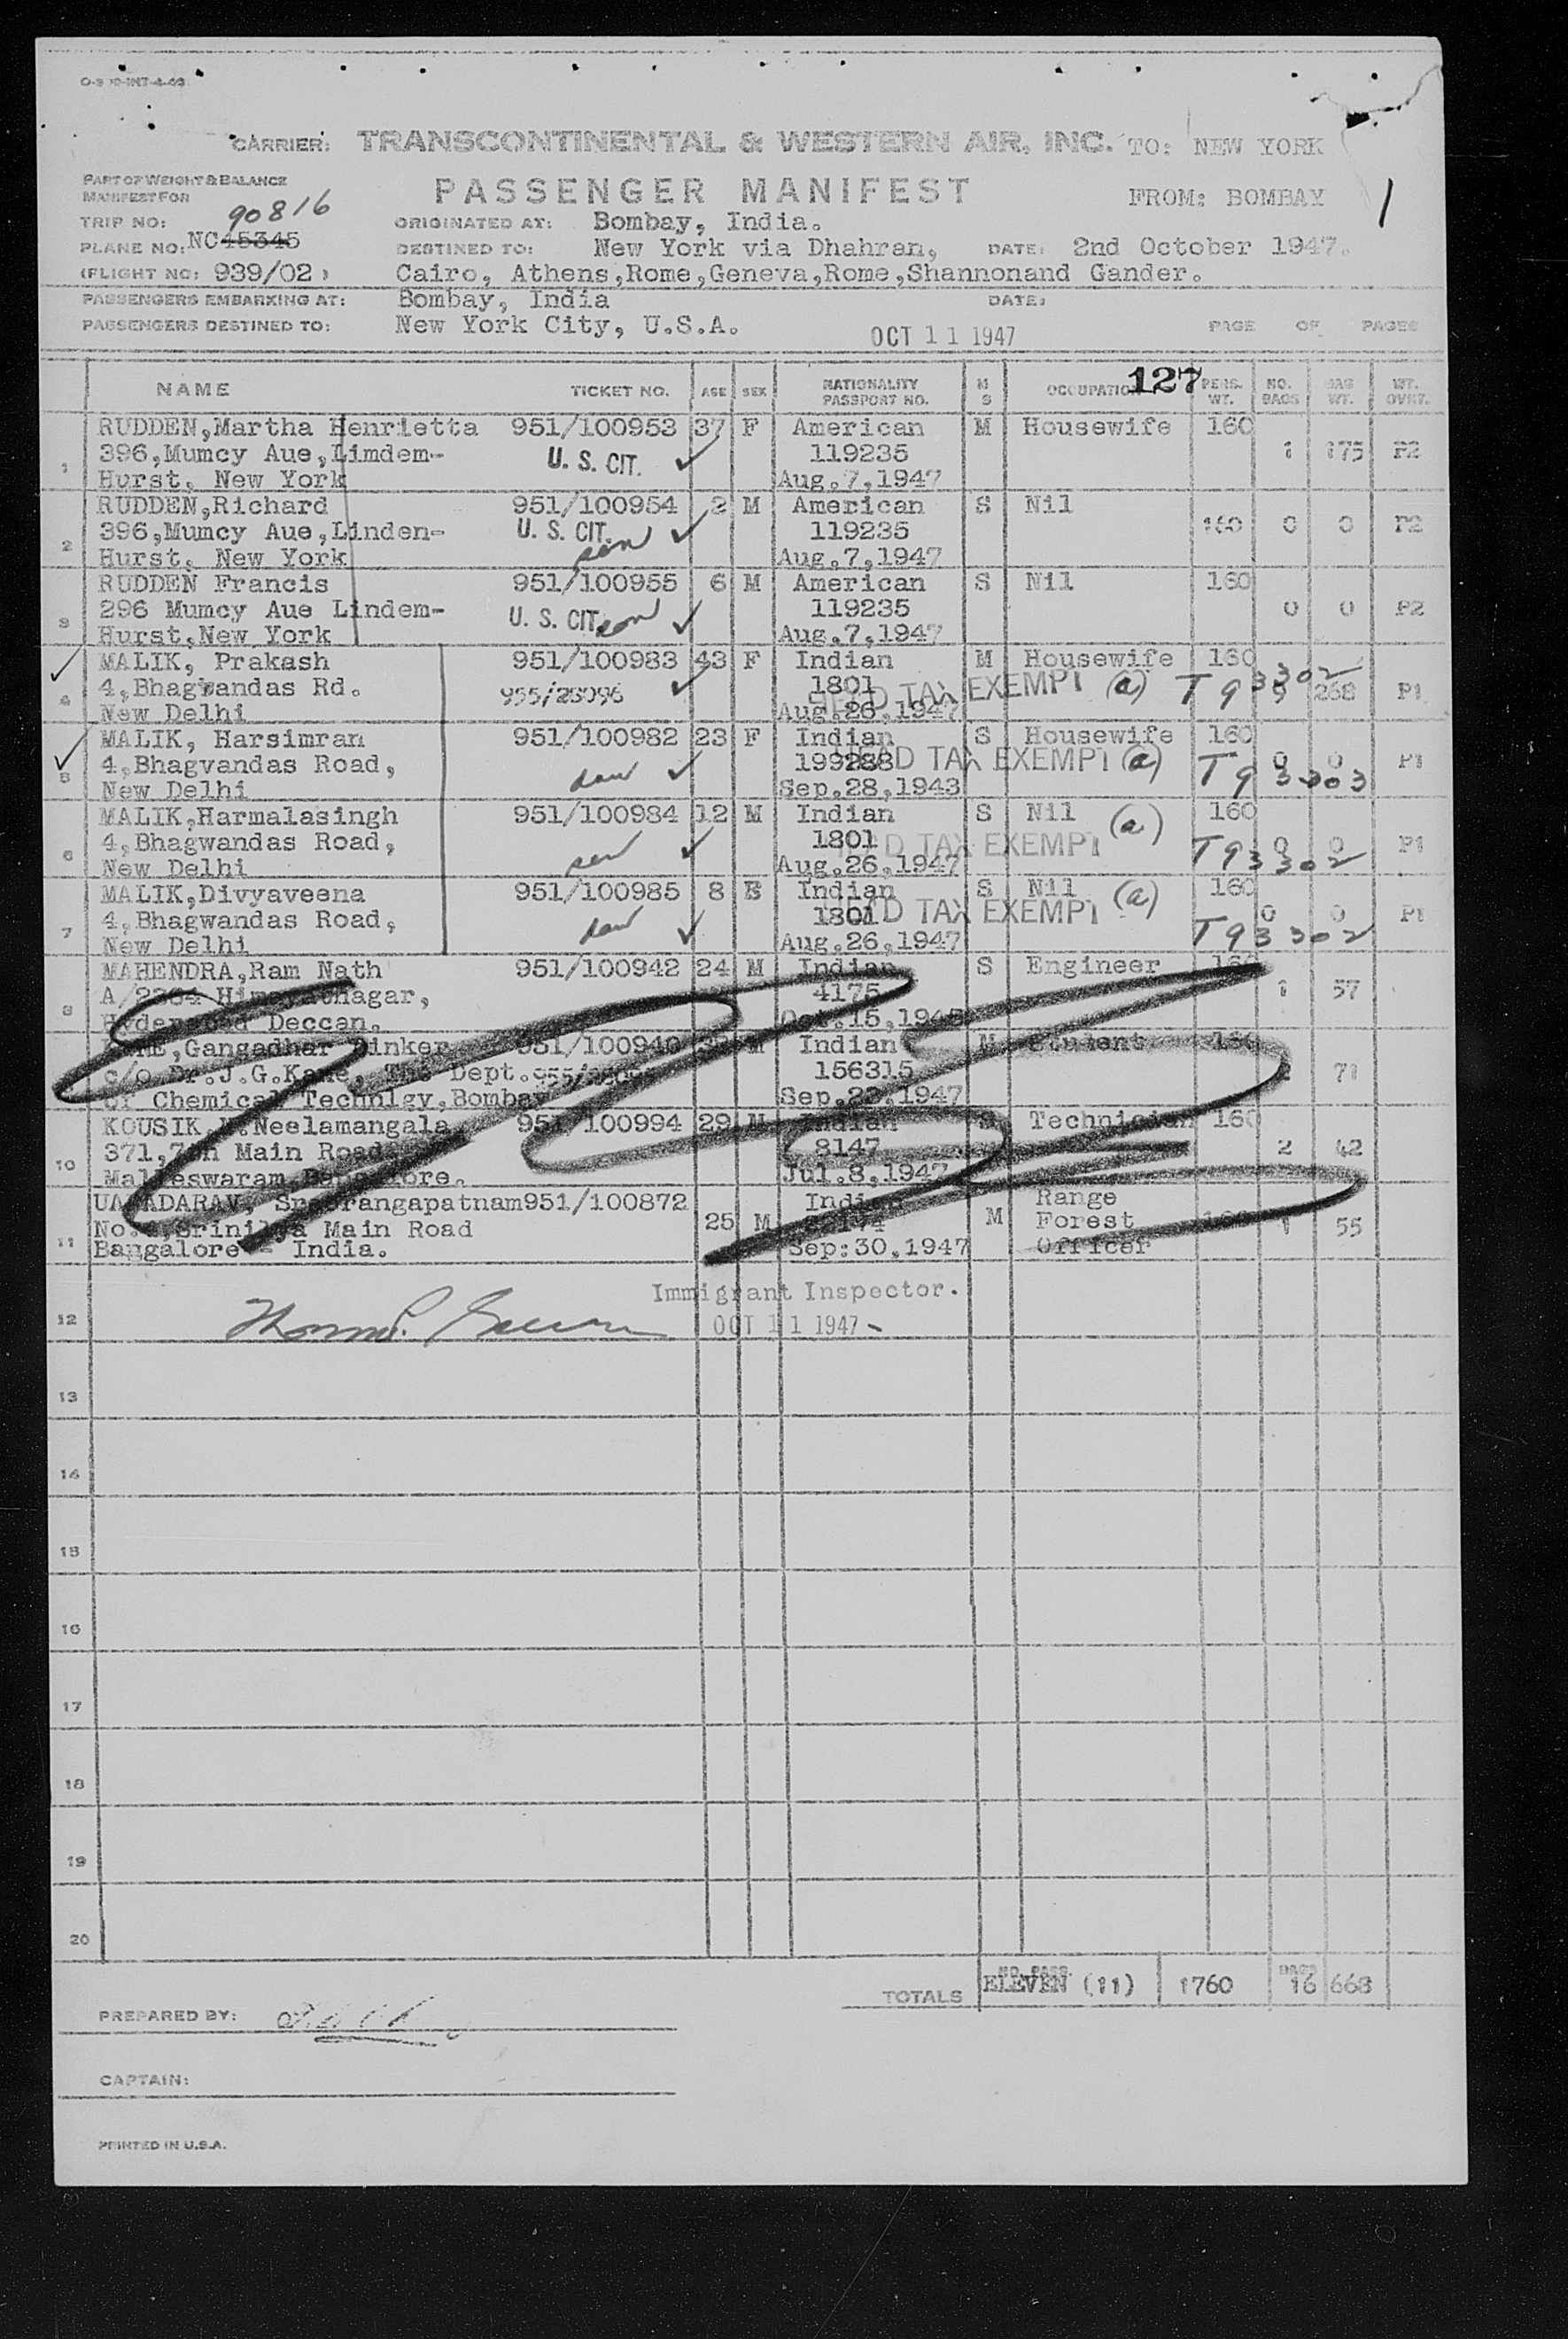 CARRIER: TRANSCONTINENTAL & WESTERN AIR, INC. TO: NEW YORK
PART OF WEIGHT & BALANCE
MANIFEST FOR
PASSENGER MANIFEST FROM: BOMBAY 1
TRIP NO: 90816 ORIGINATED AT: Bombay, India.
PLANE NO: NC45345 DESTINED TO: New York via Dhahran, DATE: 2nd October 1947.
(FLIGHT NO: 939/02) Cairo, Athens,Rome,Geneva,Rome,Shannonand Gander.
PASSENGERS EMBARKING AT: Bombay, India DATE:
PASSENGERS DESTINED TO: New York City, U.S.A. OCT 11 1947 PAGE OF PAGES
127
NAME TICKET NO. AGE SEX NATIONALITY PASSPORT NO. M S OCCUPATION PERS. WT. NO. BAGS BAG WT. WT. OVRT.
RUDDEN,Martha Henrietta 951/100953 37 F American M Housewife 160
1 396,Mumcy Aue,Limdem- U. S. CIT. ✓ 119235 1 175 P2
Hurst, New York Aug.7,1947
RUDDEN,Richard 951/100954 2 M American S Nil
2 396,Mumcy Aue,Linden- U. S. CIT. son ✓ 119235 160 0 0 P2
Hurst, New York Aug.7,1947
RUDDEN Francis 951/100955 6 M American S Nil 160
3 296 Mumcy Aue Lindem- U. S. CIT. son ✓ 119235 0 0 P2
Hurst,New York Aug.7,1947
✓ MALIK, Prakash 951/100983 43 F Indian M Housewife 160
4 4,Bhagwandas Rd. 955/25096 ✓ 1801 HEAD TAX EXEMPT (a) T 93302 268 P1
New Delhi Aug.26,1947
✓ MALIK, Harsimran 951/100982 23 F Indian S Housewife 160
5 4,Bhagvandas Road, dau ✓ HEAD TAX EXEMPT (a) T 93303 0 0 P1
New Delhi Sep.28,1943
MALIK,Harmalasingh 951/100984 12 M Indian S Nil (a) 160
6 4,Bhagwandas Road, son ✓ 1801 HEAD TAX EXEMPT T93302 0 0 P1
New Delhi Aug.26,1947
MALIK,Divyaveena 951/100985 8 Indian S Nil (a) 160
7 4,Bhagwandas Road, dau ✓ 1801 HEAD TAX EXEMPT T93302 0 0 P1
New Delhi Aug.26,1947
MAHENDRA,Ram Nath 951/100942 24 M Indian S Engineer 160
8 A/2364 Himayatnagar, 4175 1 57
Hyderabad Deccan. Oct.15,1945
Gangadhar Dinker 951/100940 M Indian M Student 160
c/o Dr.J.G.Kane, The Dept. 156315 71
of Chemical Technlgy,Bombay Sep.1947
KOUSIK Neelamangala 951/100994 29 M Indian S Technician 160
10 371,7th Main Road 8147 2 42
Malleswaram Bangalore. Jul.8,1947
Srerangapatnam951/100872 Indian Range
11 Srinilya Main Road 25 M M Forest 1 55
Bangalore - India. Sep:30,1947 Officer
Immigrant Inspector.
12 OCT 11 1947
13
14
15
16
17
18
19
20
TOTALS NO. PASS. ELEVEN (11) 1760 BAGS 16 668
PREPARED BY:
CAPTAIN:
PRINTED IN U.S.A.